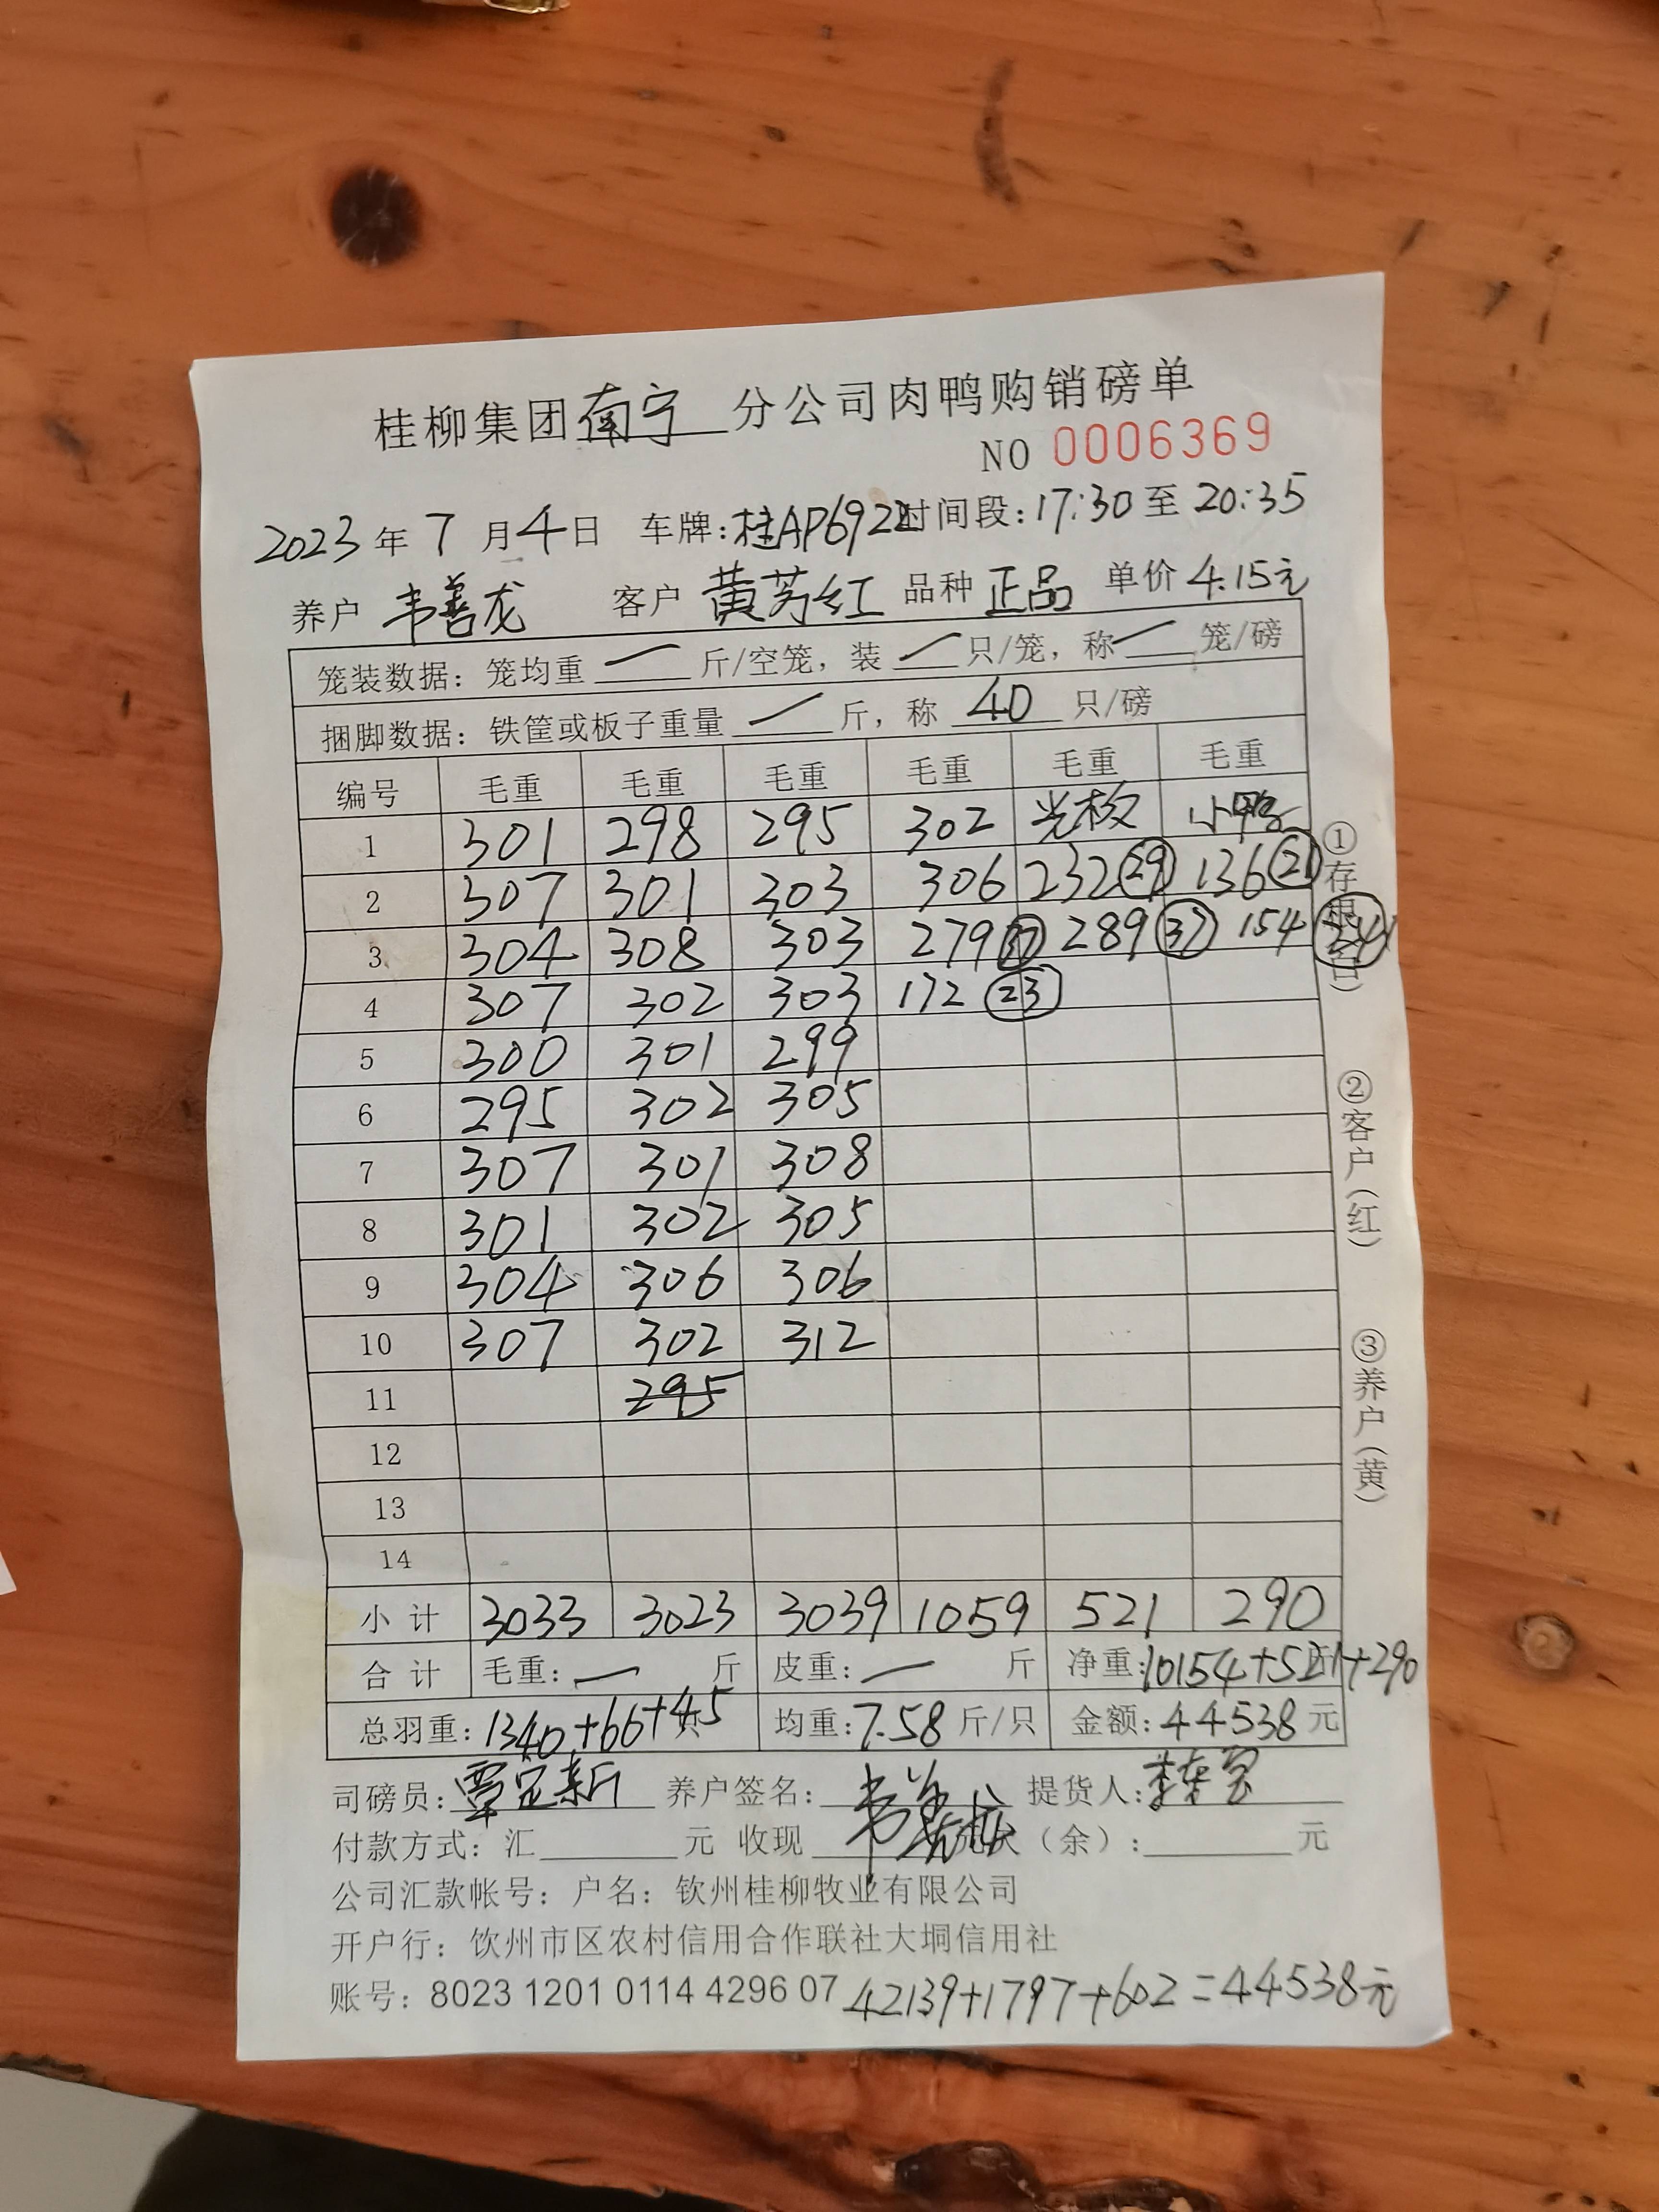 桂柳集团南宁分公司肉鸭购销磅单
NO 0006369
2023年7月4日 车牌:桂AP6922时间段:17:30至20:35
养户 韦善龙 客户 黄芳红 品种 正品 单价 4.15元
笼装数据：笼均重 一 斤/空笼，装 一 只/笼，称 一 笼/磅
捆脚数据：铁筐或板子重量 一 斤，称 40 只/磅
编号 毛重 毛重 毛重 毛重 毛重 毛重
1 301 298 295 302 光板 小鸭
2 307 301 303 306 232 29 136 21
3 304 308 303 279 37 289 37 154 24
4 307 302 303 172 23
5 300 301 299
6 295 302 305
7 307 301 308
8 301 302 305
9 304 306 306
10 307 302 312
11 295
12
13
14
小计 3033 3023 3039 1059 521 290
合计 毛重：一 斤 皮重：一 斤 净重:10154+521+290
总羽重:1340+66+45 只 均重:7.58斤/只 金额:44538元
司磅员:覃定新 养户签名:韦善龙 提货人:
付款方式：汇 元 收现 元欠（余）: 元
公司汇款帐号：户名：钦州桂柳牧业有限公司
开户行：饮州市区农村信用合作联社大垌信用社
账号：8023 1201 0114 4296 07 42139+1797+602=44538元
①存根(白)
②客户(红)
③养户(黄)